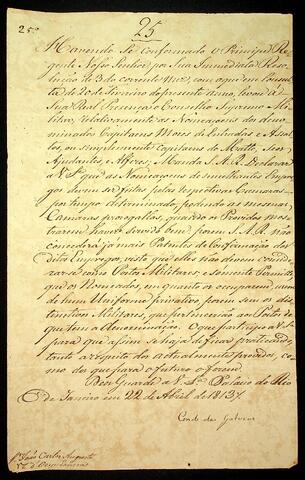 25
25
Havendo Se Conformado O Principe Re
gente Nosso Senhor, por Sua Immediata Reso
lução de 3 do corrente Mez, com aque em Consul
ta de 20 de Janeiro do presente anno, levou á
Sua Real Prezença o Conselho Supremo Mi
litar, relativamente as Nomeaçoens dos deno
minados Capitaens Móres de Entradas e Assal
tos, ou simplesmente Capitaens do Matto, Seos
Ajudantes e Alferes; Manda S.A.R. Declarar
a V.S.ª que as Nomeaçoens de semilhantes Empre
gos devem ser feitas pelas respectivas Camaras
por tempo determinado, podendo as mesmas
Camaras prorogallos, quando os Providos mos
trarem haver servido bem porem S.A.R. não
concederá já mais Patentes de Confirmação dos
ditos Empregos, visto que elles não devem conside
rar-se como Postos Militares; e somente Permitte
que os Nomeados, em quanto os occuparem, uzem
de hum Uniforme privativo porem sem os dis
tinctivos Militares, que pertencerião aos Postos de
que tem a denominação. O que participo a V.S.ª
para que assim se haja de ficar praticando,
tanto a respeito dos actualmente providos, co
mo dos que para o futuro o forem.
Deos Guarde a V.S.ª Palacio do Rio
de Janeiro em 22 de Abril de 1813.
Conde das Galveas
João Carlos Augusto
d'Oeynhausen